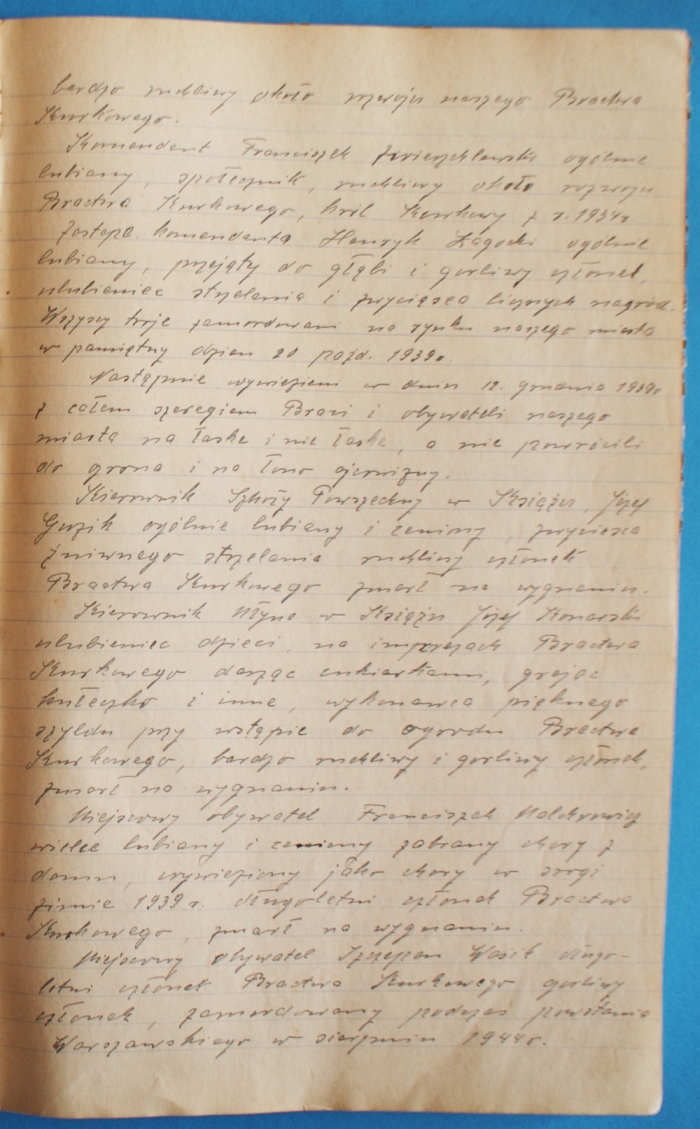 bardzo ruchliwy około rozwoju naszego Bractwa
Kurkowego.
Komendant Franciszek ogólnie
lubiany, społecznik, ruchliwy około rozwoju
Bractwa Kurkowego, król Kurkowy z r. 1934r
Zastępa. komendanta Henryk Łagocki ogólnie
lubiany, przejęty do głębi i gorliwy członek,
ulubieniec strzelania i zwycięsca licznych nagród.
Wszyscy troje zamordowani na rynku naszego miasta
w pamiętny dzień 20 pażd. 1939r.
Następnie wywiezieni w dniu 12. grudnia 1939r
z całem szeregiem Braci i obywateli naszego
miasta na łaskę i nie łaskę, a nie powrócili
do grona i na łono ojczyzny.
Kierownik Szkoły Powszechny w Książu, Józef
Guzik ogólnie lubiany i ceniony, zwycięsca
żniwnego strzelania ruchliwy członek
Bractwa Kurkowego zmarł na wygnaniu.
Kierownik Młyna w Książu Józef Konarski
ulubieniec dzieci, na imprezach Bractwa
Kurkowego darząc cukierkami, grając
kółeczko i inne, wykonawca pięknego
szyldu przy wstępie do ogrodu Bractwa
Kurkowego, bardzo ruchliwy i gorliwy członek,
zmarł na wygnaniu.
Miejscowy obywatel Franciszek
wielce lubiany i ceniony zabrany chory z
domu, wywieziony jako chory w srogi
zimie 1939 r. długoletni członek Bractwa
Kurkowego, zmarł na wygnaniu.
Miejscowy obywatel Szczepan Wosik długo-
letni członek Bractwa Kurkowego gorliwy
członek, zamordowany podczas powstania
Warszawskiego w sierpniu 1944r.